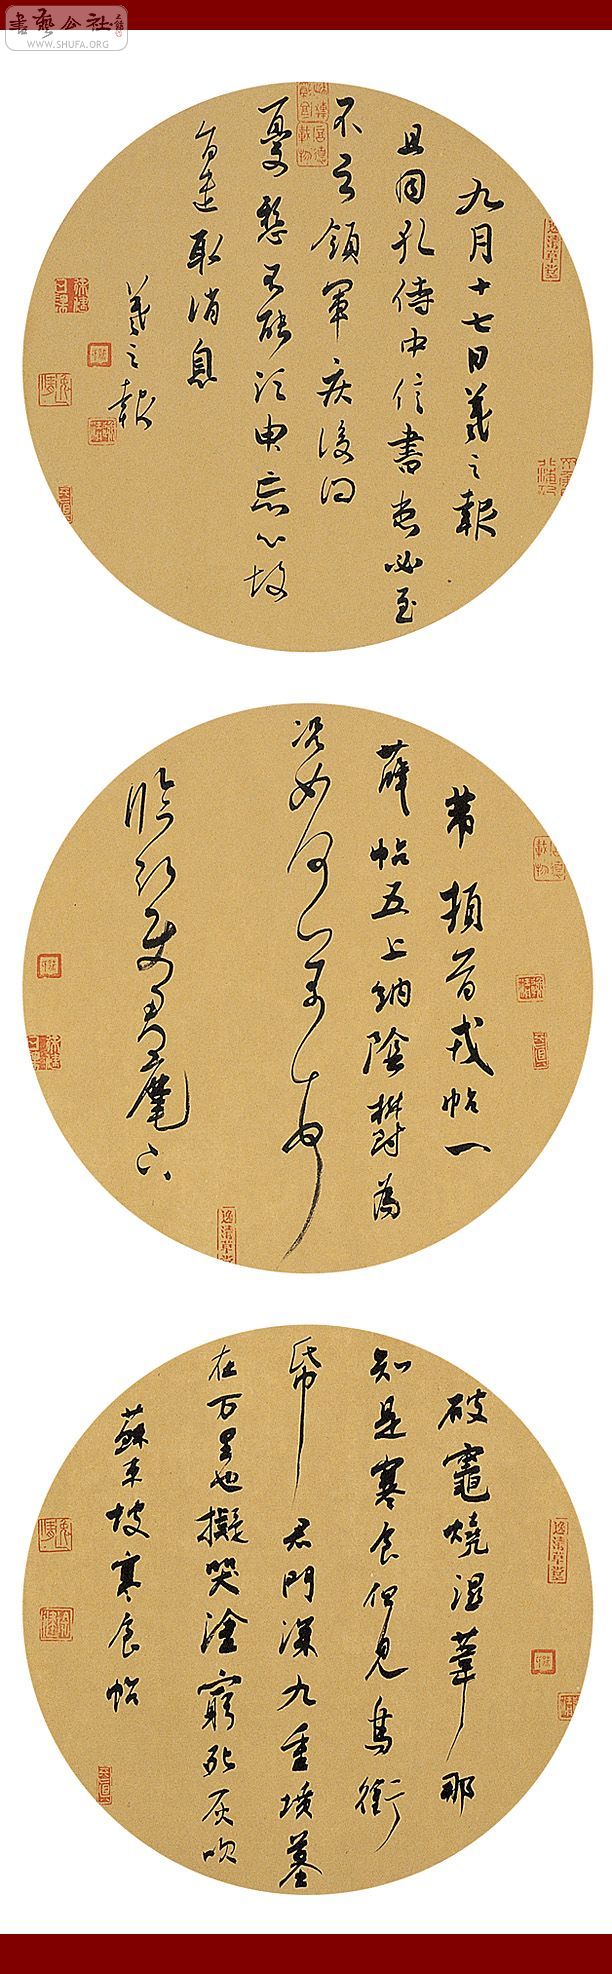 書藝公社
WWW.SHUFA.ORG
九月十七日羲之報
且因孔侍中信書想必至
不知領軍疾後問
憂懸不能須臾忘心故
旨遣取消息
羲之報
芾頓首戎帖一
薛帖五上納陰鬱為
況如何芾頓首
破竈燒湿葦那
知是寒食但見烏銜
帋君門深九重墳墓
在万里也擬哭塗窮死灰吹
蘇東坡寒食帖
逸清草堂